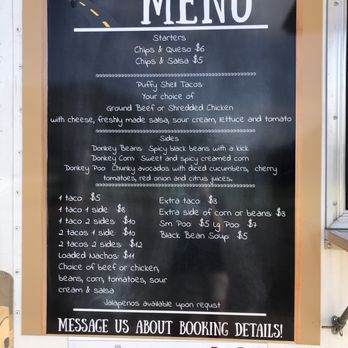 MENU
Starters
Chips & Queso $6
Chips & Salsa $5
Puffy Shell Tacos
Your choice of
Ground Beef or Shredded Chicken
with cheese, freshly made salsa, sour cream, lettuce and tomato
Sides
Donkey Beans Spicy black beans with a kick
Donkey Corn Sweet and spicy creamed corn
Donkey Poo Chunky avocados with diced cucumbers, cherry
tomatoes, red onion and citrus juices.
1 taco $5
1 taco 1 side $8
1 taco 2 sides $10
2 tacos 1 side $10
2 tacos 2 sides $12
Loaded Nachos $11
Choice of beef or chicken,
beans, corn, tomatoes, sour
cream & salsa
Extra taco $3
Extra side of corn or beans $3
Sm Poo $5 Lg Poo $7
Black Bean Soup $5
Jalapenos available upon requst
MESSAGE US ABOUT BOOKING DETAILS!